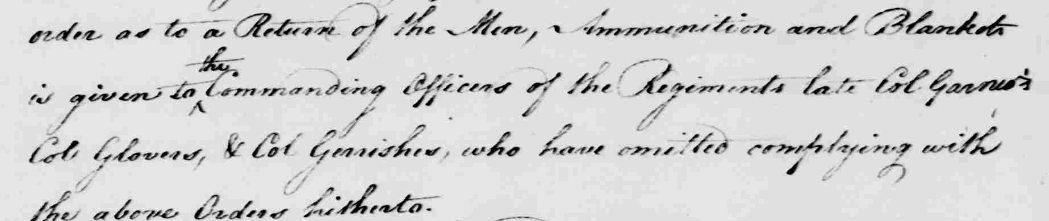 order as to a Return of the Men, Ammunition and Blankets
is given to the Commanding Officers of the Regiments late Col Garner's
Col Glovers, & Col Gerrishes, who have omitted complying with
the above Orders hitherto.